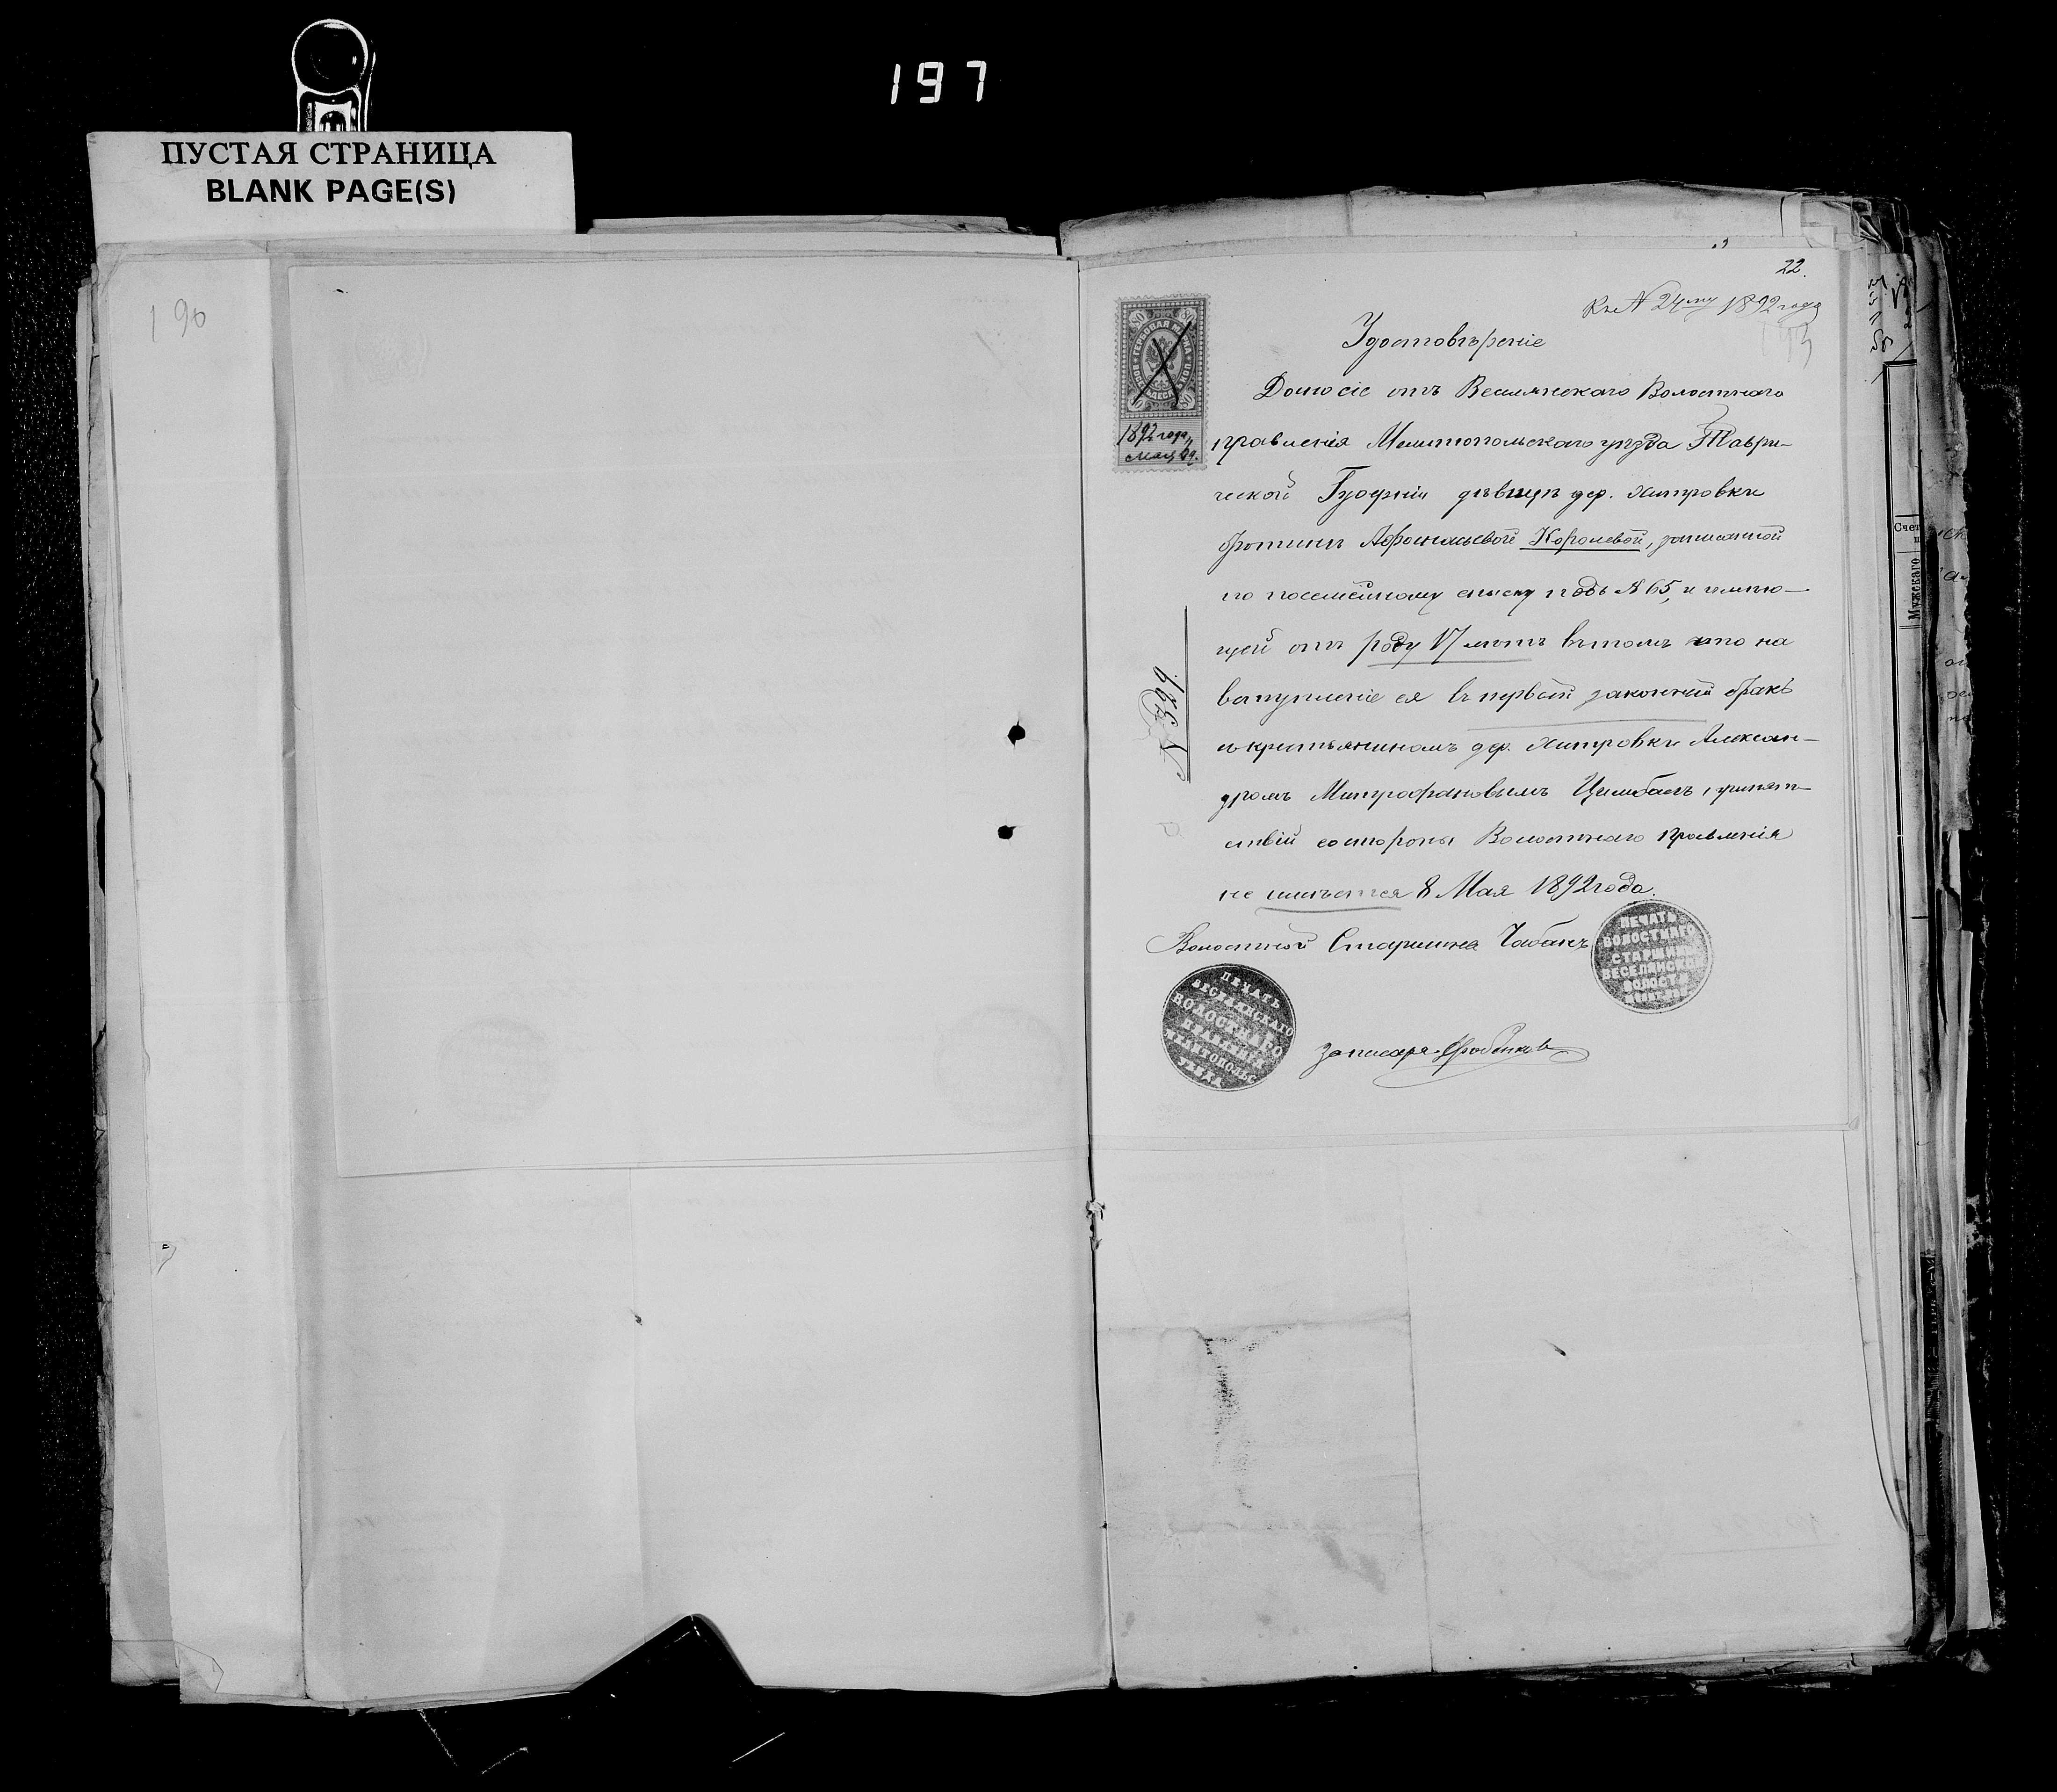 197
ПУСТАЯ СТРАНИЦА
BLANK PAGE(S)
190
22.
Къ № 24му 1892 года
193
Удостовѣреніе
Дано сіе отъ Веселянскаго Волостнаго
правленія Мелитопольскаго уѣзда Таври-
ческой Губерніи дѣвицѣ дер. Хитровки
Афонасьевой Королевой, записанной
по посемейному списку подъ № 65, и имѣю-
щей отъ роду 17 лѣтъ въ томъ что на
вступленіе ея въ первый законный бракъ
съ крестьяниномъ дер. Хитровки Алексан-
дромъ Митрофановымъ Цимбалъ, препят-
ствій со стороны Волостнаго Правленія
не имѣется 8 Мая 1892 года.
Волостной Старшина Чабанъ
За писаря
№ 399
80 80
ГЕРБОВАЯ МАРКА
80 80
1892 года
Мая
ПЕЧАТЬ
ВОЛОСТНАГО
СТАРШИНЫ
ВЕСЕЛЯНСКОЙ
ВОЛОСТИ
ПЕЧАТЬ
ВЕСЕЛЯНСКАГО
ВОЛОСТНАГО
ПРАВЛЕНІЯ
МЕЛИТОПОЛЬС
УѢЗДА
Счет
Мужскаго